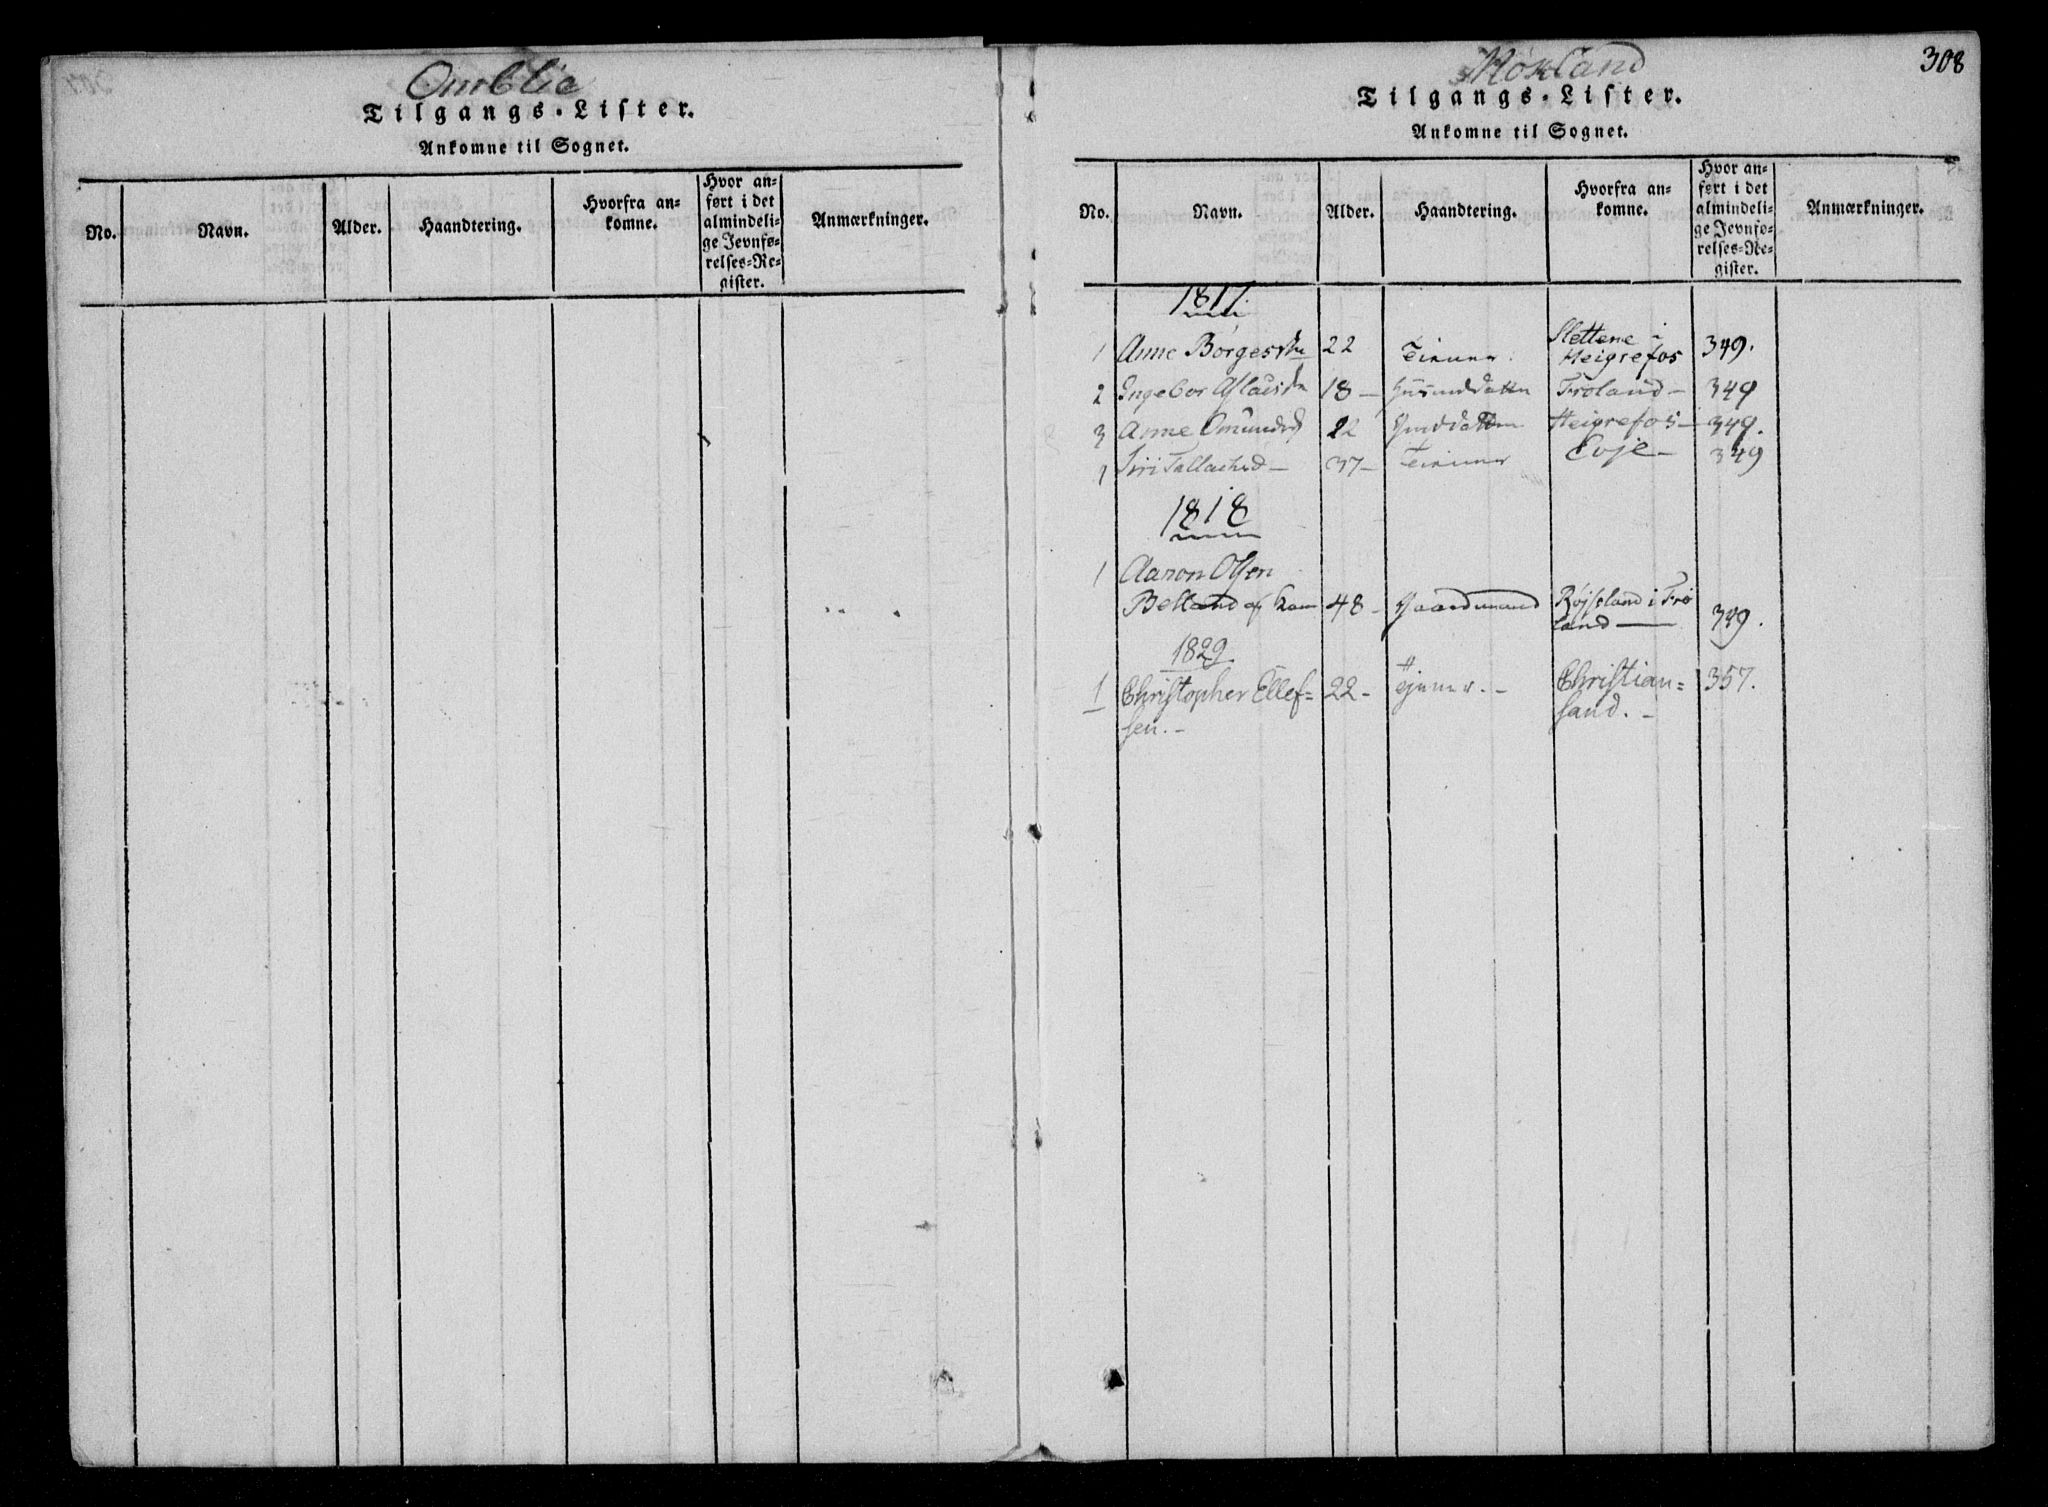 Omblie
Tilgangs-Lister.
Ankomne til Sognet.
No.
Navn.
Alder.
Haandtering.
Hvorfra an-
komne.
Hvor an-
ført i det
almindeli-
ge Jevnfø-
relses-Re-
gister.
Anmærkninger.
308
Mökland
Tilgangs-Lister.
Ankomne til Sognet.
No.
Navn.
Alder.
Haandtering.
Hvorfra an-
komne.
Hvor an-
ført i det
almindeli-
ge Jevnfø-
relses-Re-
gister.
Anmærkninger.
1817.
Slettene i
1 Anne Børges 22 Tienner Heigrefos 349.
2 Ingebor 18 - Froland - 349
3 Anne Omunds 22 Heigrefos - 349.
1 Siri Tallachsd - 37 - Tienner Evje - 349
1818
1 Aaron Olsen
Belland af 48 - Gaardmand Röjseland i Fro
land - 349.
1829
1 Christopher Ellef= 22 - Tjener. - Christian= 357.
sen. - sand. -